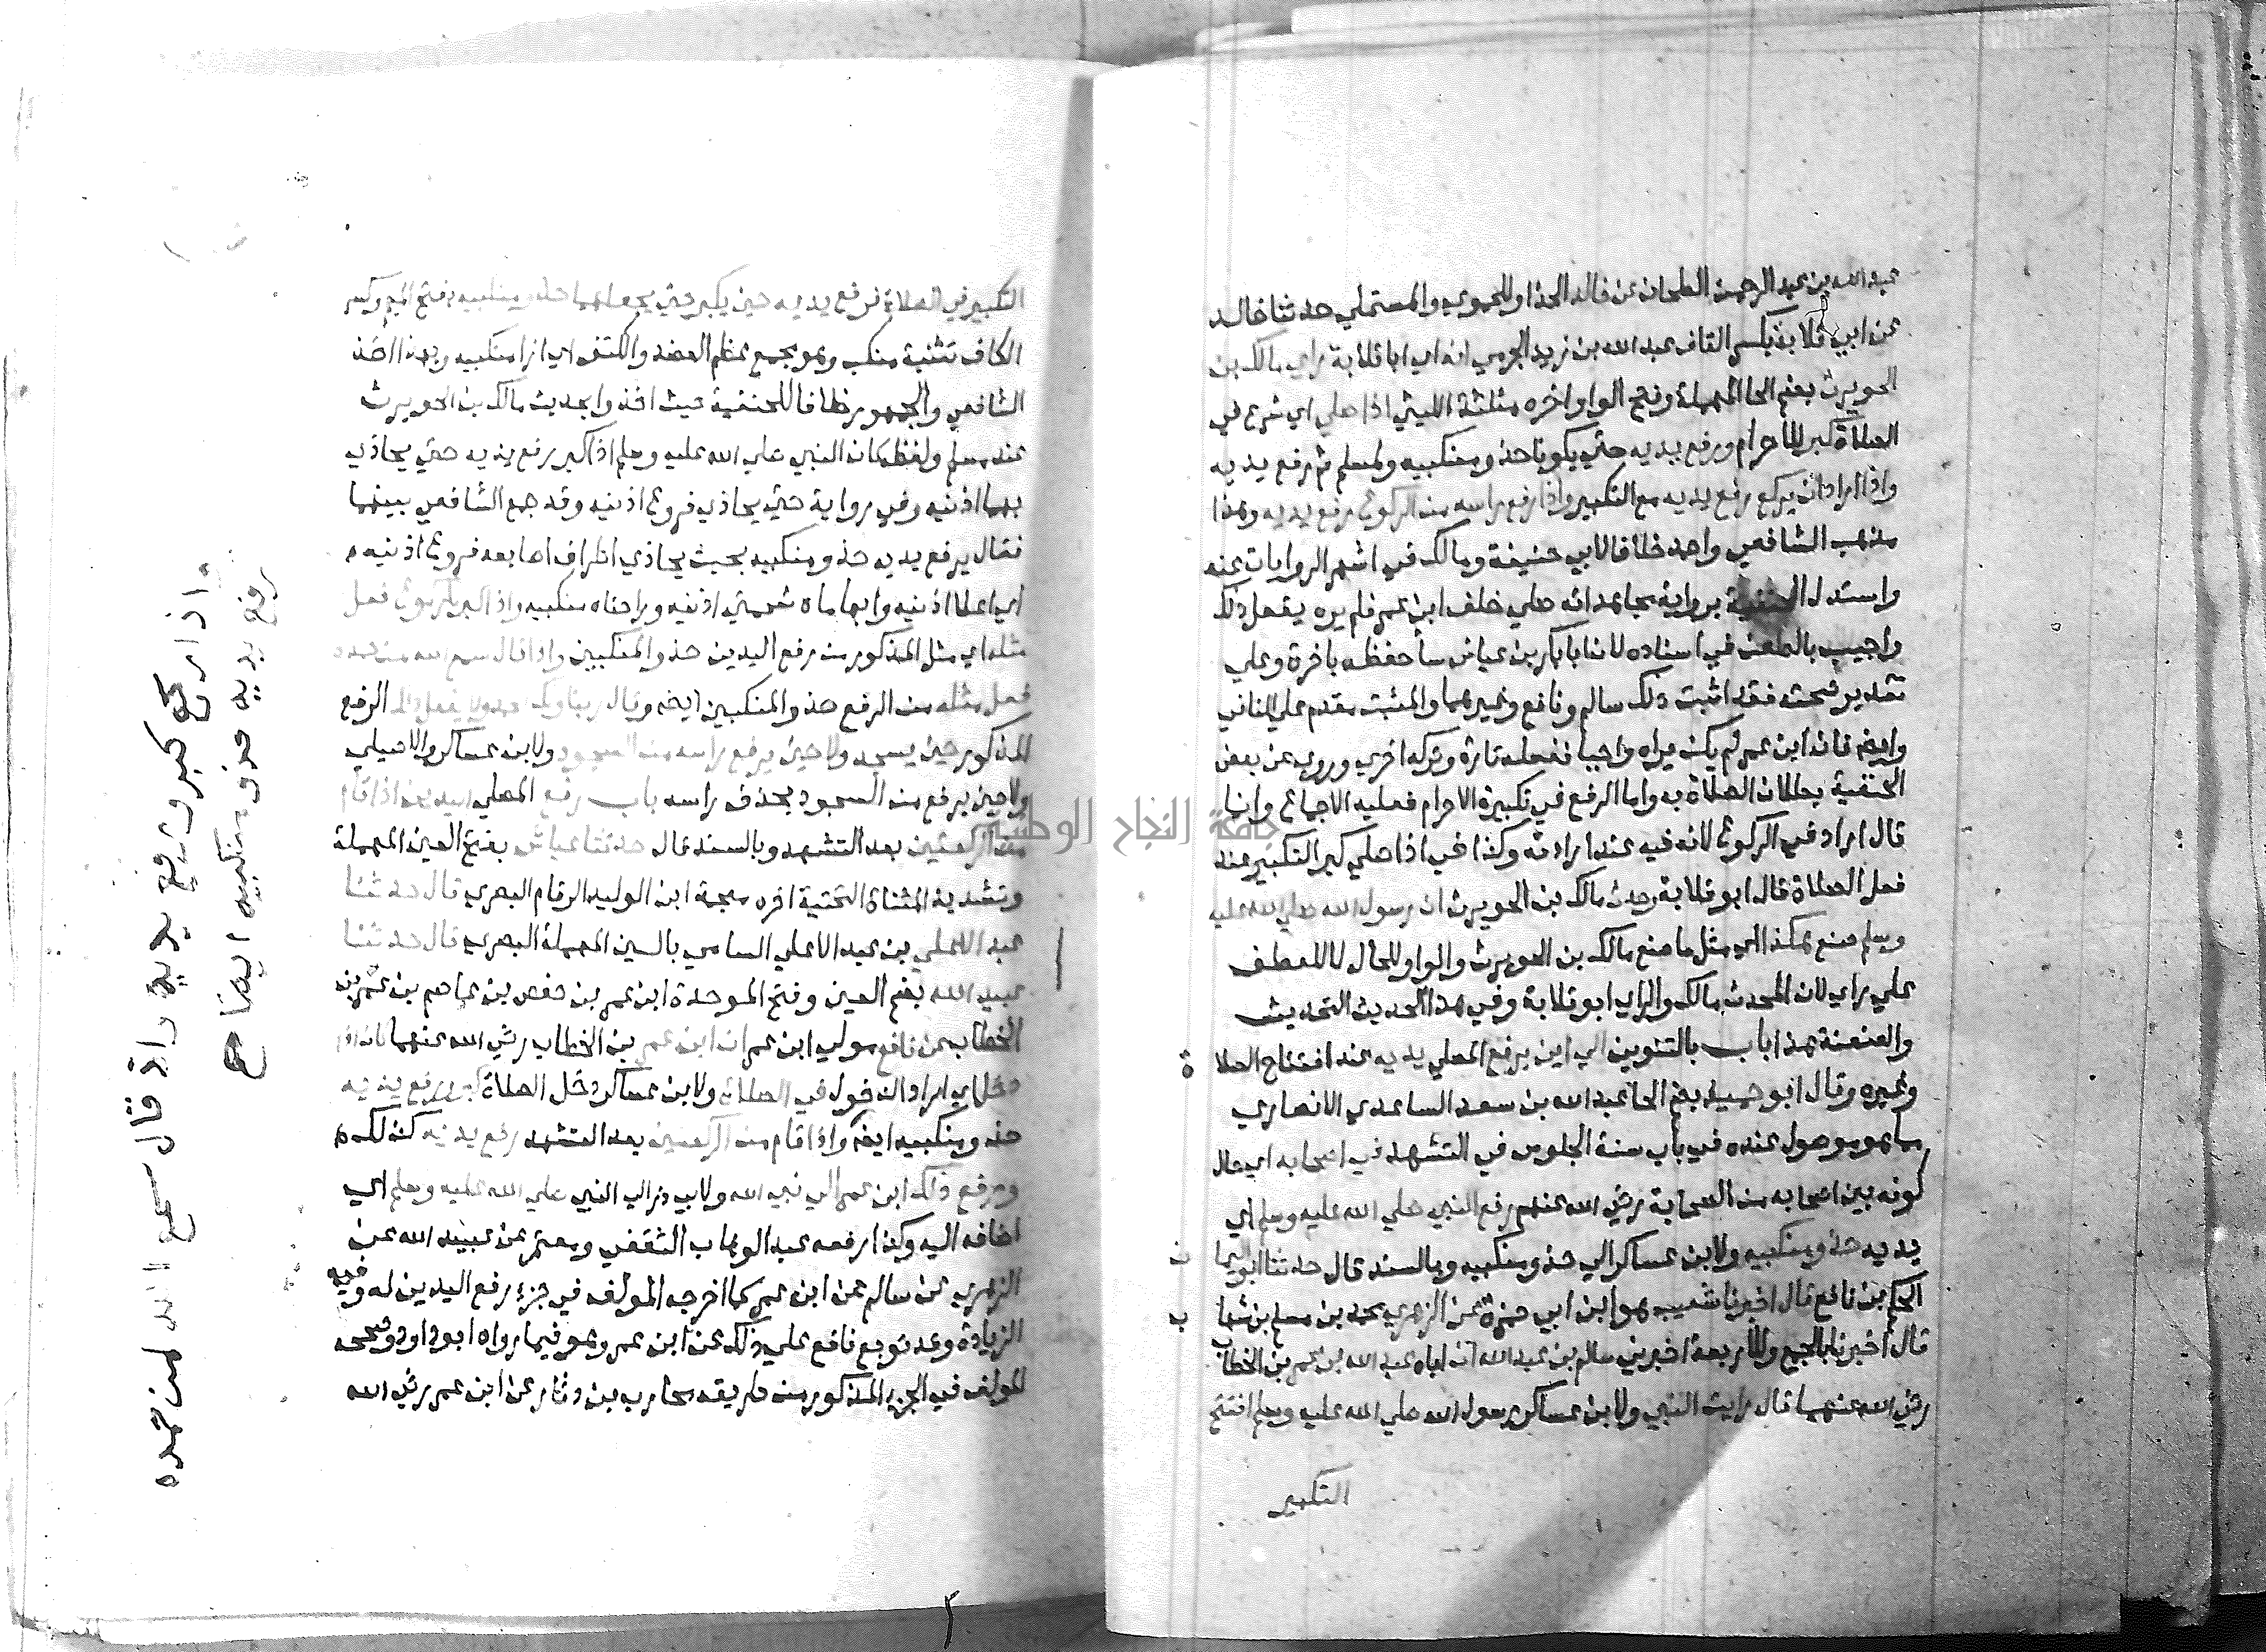 عبد الله بن عبد الرحمن الطحان عن خالد الحذا وللحموي والمستملي حدثنا خالد
عن ابي قلابة بكسر القاف عبد الله بن زيد الجرمي انه اي ابا قلابة راي مالك بن
الحويرث بضم الحا المهملة وفتح الواو اخره مثلثة الليثي اذا صلي اي شرع في
الصلاة كبر للاحرام ورفع يديه حتي يكونا حذو منكبيه ولمسلم ثم رفع يديه
واذا اراد ان يركع رفع يديه مع التكبير واذا رفع راسه من الركوع رفع يديه وهذا
مذهب الشافعي واحمد خلافا لابي حنيفة ومالك في اشهر الروايات عنه
واستدل الحنفية برواية مجاهد انه صلي خلف ابن عمر فلم يره يفعل ذلك
واجيب بالطعن في اسناده لان ابا بكر بن عياش سأ حفظه باخرة وعلي
تقدير صحته فقد اثبت ذلك سالم ونافع وغيرهما والمثبت مقدم علي النافي
وايضا فان ابن عمر لم يكن يراه واجبا ففعله تارة وتركه اخري وروي عن بعض
الحنفية بطلان الصلاة به واما الرفع في تكبيرة الاحرام فعليه الاجماع وانما
قال اراد في الركوع لانه فيه عند ارادته وكذا في اذا صلي كبر التكبير عند
فعل الصلاة قال ابو قلابة وحدث مالك بن الحويرث ان رسول الله صلي الله عليه
وسلم صنع هكذا اي مثل ما صنع مالك بن الحويرث والواو للحال لا للعطف
علي راي لان المحدث مالك والراي ابو قلابة وفي هذا الحديث التحديث
والعنعنة هذا باب بالتنوين الي اين يرفع المصلي يديه عند افتتاح الصلاة
وغيره وقال ابو حميد بضم الحا عبد الله بن سعد الساعدي الانصاري
مما هو موصول عنده في باب سنة الجلوس في التشهد في اصحابه اي حال
كونه بين اصحابه من الصحابة رضي الله عنهم رفع النبي صلي الله عليه وسلم اي
يديه حذو منكبيه ولابن عساكر الي حذو منكبيه وبالسند قال حدثنا ابو اليمان
الحكم بن نافع قال اخبرنا شعيب هو ابن ابي حمزة عن الزهري محمد بن مسلم بن شهاب
قال اخبرنا بالجمع وللاربعة اخبرني سالم بن عبد الله ان اباه عبد الله بن عمر بن الخطاب
رضي الله عنهما قال رايت النبي ولابن عساكر رسول الله صلي الله عليه وسلم افتتح
التكبير
التكبير في الصلاة فرفع يديه حين يكبر حتي يجعلهما حذو منكبيه بفتح الميم وكسر
الكاف تثنية منكب وهو مجمع عظم العضد والكتف اي ازا منكبيه وبهذا اخذ
الشافعي والجمهور خلافا للحنفية حيث اخذوا بحديث مالك بن الحويرث
عند مسلم ولفظه كان النبي صلي الله عليه وسلم اذا كبر رفع يديه حتي يحاذي
بهما اذنيه وفي رواية حتي يحاذي فروع اذنيه وقد جمع الشافعي بينهما
فقال يرفع يديه حذو منكبيه بحيث يحاذي اطراف اصابعه فروع اذنيه
اي اعلا اذنيه وابهاماه شحمتي اذنيه وراحتاه منكبيه واذا كبر للركوع فعل
مثله اي مثل المذكور من رفع اليدين حذو المنكبين واذا قال سمع الله لمن حمده
فعل مثله من الرفع حذو المنكبين ايضا وقال ربنا ولك الحمد ولا يفعل ذلك الرفع
المذكور حين يسجد ولا حين يرفع راسه من السجود ولابن عساكر والاصيلي
ولا حين يرفع من السجود بحذف راسه باب رفع المصلي يديه اذا قام
من الركعتين بعد التشهد وبالسند قال حدثنا عياش بفتح العين المهملة
وتشديد المثناة التحتية اخره معجمة ابن الوليد الرقام البصري قال حدثنا
عبد الاعلي بن عبد الاعلي السامي بالسين المهملة البصري قال حدثنا
عبيد الله بضم العين وفتح الموحدة ابن عمر بن حفص بن عاصم بن عمر بن
الخطاب عن نافع مولي ابن عمر ان ابن عمر بن الخطاب رضي الله عنهما كان اذا
دخل اي اراد الدخول في الصلاة ولابن عساكر دخل الصلاة كبر ورفع يديه
حذو منكبيه ايضا واذا قام من الركعتين بعد التشهد رفع يديه كذلك
ورفع ذلك ابن عمر الي نبي الله ولابي ذر الي النبي صلي الله عليه وسلم اي
اضافه اليه وكذا رفعه عبد الوهاب الثقفي ومعتمر عن عبيد الله عن
الزهري عن سالم عن ابن عمر كما اخرجه المولف في جزء رفع اليدين له وفيه
الزيادة وقد توبع نافع علي ذلك عن ابن عمر وهو فيما رواه ابو داود وصححه
المولف في الجزء المذكور من طريقه محارب بن دثار عن ابن عمر رضي الله
واذا ركع كبر ورفع يديه واذا قال سمع الله لمن حمده
رفع يديه حذو منكبيه ايضا صح
جامعة النجاح الوطنية